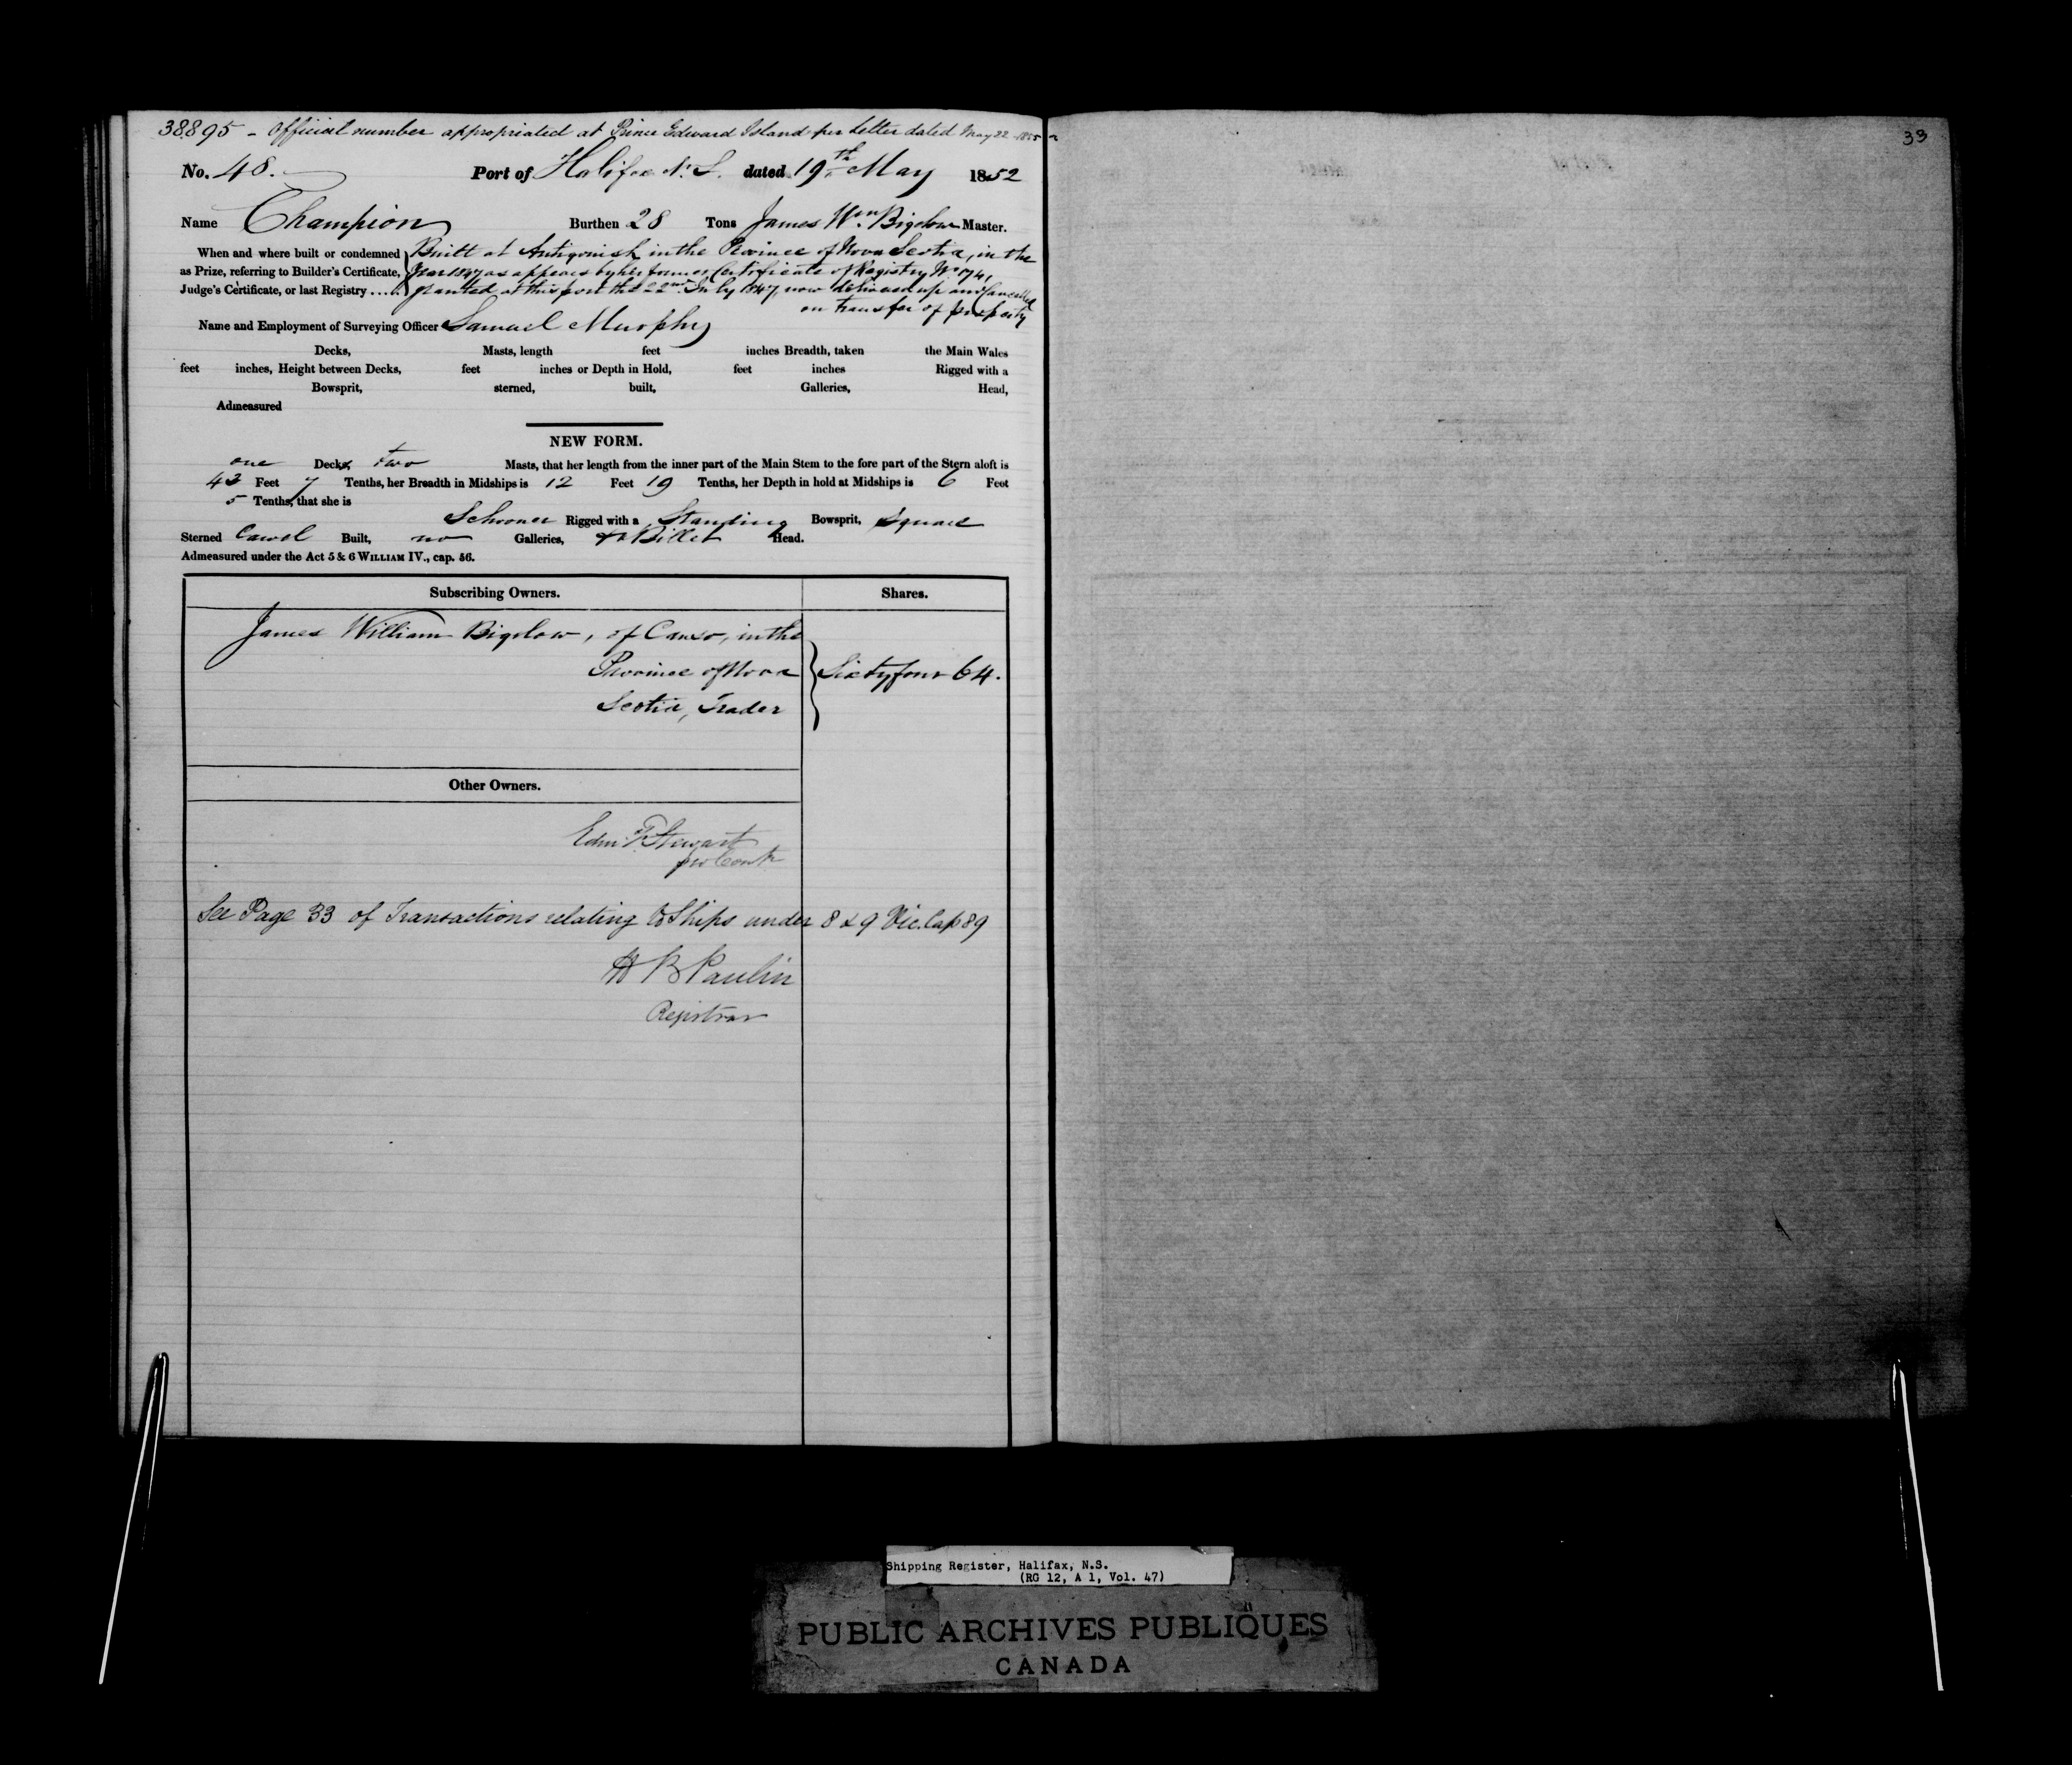 38895 - Official number appropriated at Prince Edward Island per letter dated May 22
No. 48. Port of Halifax N. S. dated 19th May 1852
Name Champion Burthen 28 Tons James Wm. Bigelow Master.
When and where built or condemned as Prize, referring to Builder's Certificate, Judge's Certificate, or last Registry ....
Built at Antigonish in the Province of Nova Scotia, in the
Year 1847 as appears by her former Certificate of Registry No. 74,
granted at this port the 22nd July 1847, now delivered up and Cancelled
on transfer of property
Name and Employment of Surveying Officer Samuel Murphy
Decks, Masts, length feet inches Breadth, taken the Main Wales
feet inches, Height between Decks, feet inches or Depth in Hold, feet inches Rigged with a
Bowsprit, sterned, built, Galleries, Head,
Admeasured
NEW FORM.
one Decks, two Masts, that her length from the inner part of the Main Stem to the fore part of the Stern aloft is
43 Feet 7 Tenths, her Breadth in Midships is 12 Feet 19 Tenths, her Depth in hold at Midships is 6 Feet
5 Tenths, that she is
Schooner Rigged with a Standing Bowsprit, Square
Sterned Carvel Built, no Galleries, Billet Head.
Admeasured under the Act 5 & 6 WILLIAM IV., cap. 56.
Subscribing Owners. Shares.
James William Bigelow, of Canso, in the
Province of Nova } Sixty four 64.
Scotia, Trader
Other Owners.
Edm F Stewart
pro Contr
See Page 33 of Transactions relating to Ships under 8 & 9 Vic. Cap 89
H B Paulin
Registrar
33
Shipping Register, Halifax, N.S.
(RG 12, A 1, Vol. 47)
PUBLIC ARCHIVES PUBLIQUES
CANADA